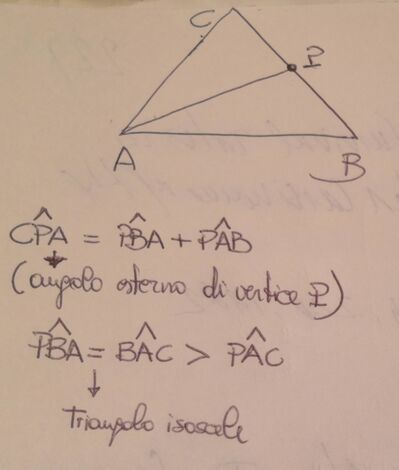 C
P
A
B
CP̂A = PB̂A + PÂB
(angolo esterno di vertice P)
PB̂A = BÂC > PÂC
Triangolo isoscele